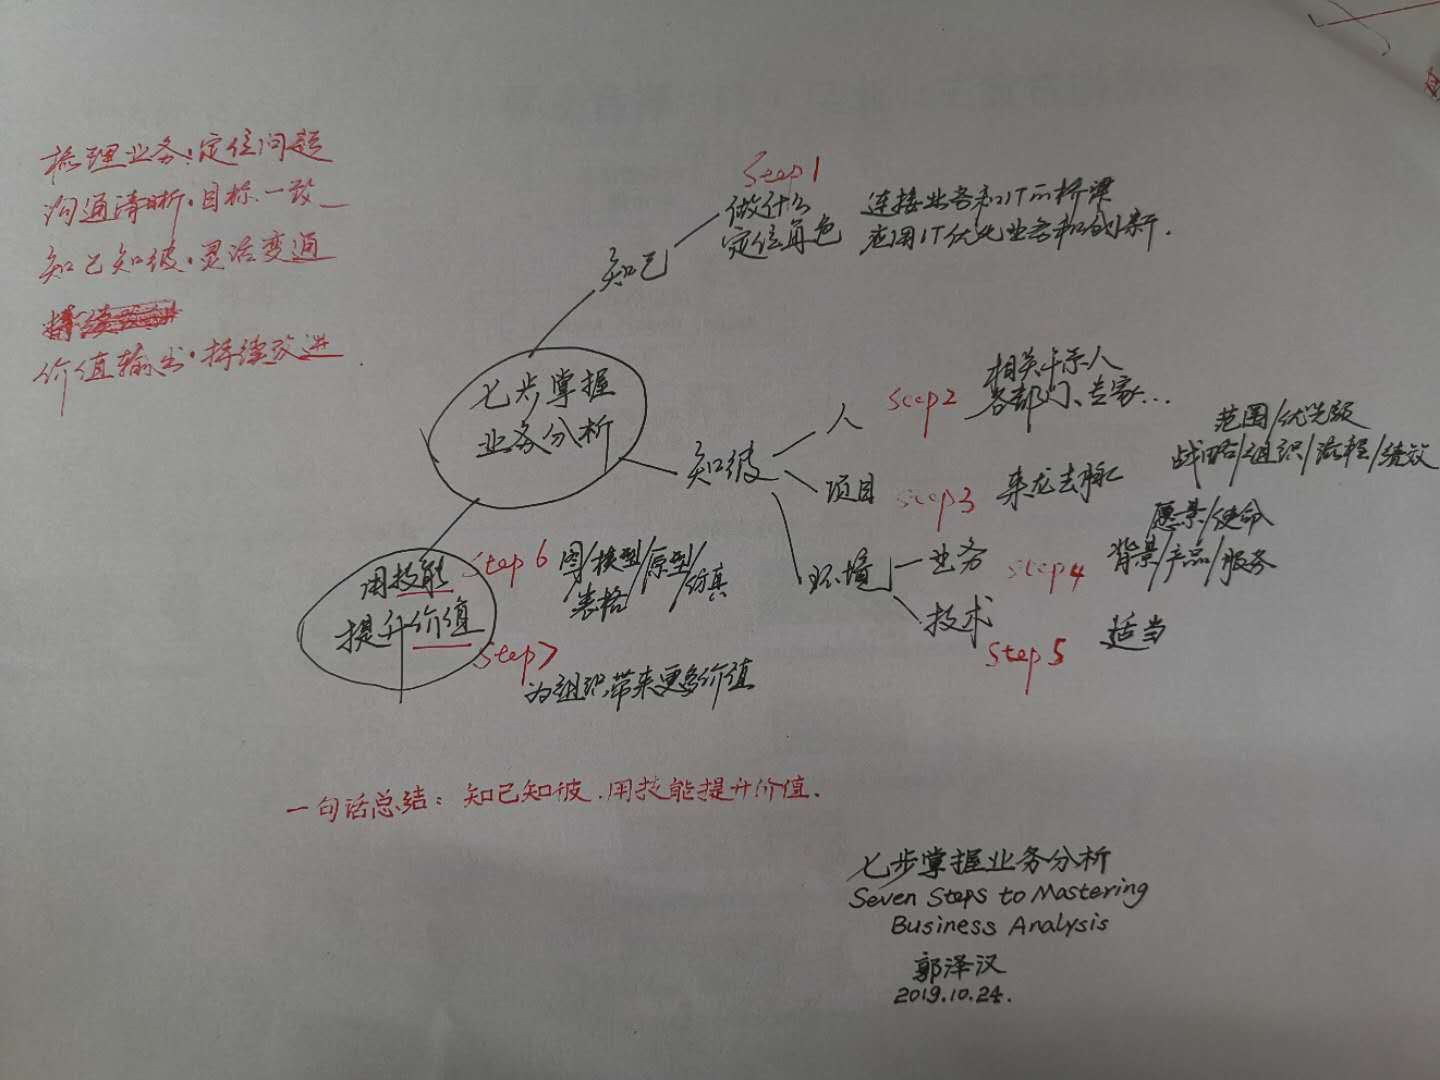 梳理业务·定位问题
沟通清晰·目标一致
知己知彼·灵活变通
价值输出·持续改进
Step1
做什么
定位角色
连接业务和IT的桥梁
应用IT优化业务和创新.
知己
七步掌握
业务分析
知彼
人
Step2
相关干系人
各部门、专家...
项目
Step3
来龙去脉
范围/优先级
战略/组织/流程/绩效
环境
业务
Step4
愿景/使命
背景/产品/服务
技术
Step5
适当
用技能
提升价值
Step6
图/模型/原型/仿真
表格
Step7
为组织带来更多价值
一句话总结：知己知彼.用技能提升价值.
七步掌握业务分析
Seven Steps to Mastering
Business Analysis
郭泽汉
2019.10.24.